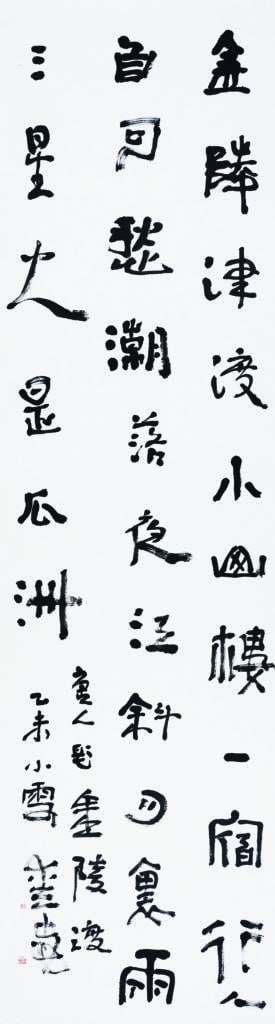 金陵津渡小山樓一宿行人
自可愁潮落夜江斜月裏兩
三星火是瓜洲
唐人金陵渡
乙未小雪